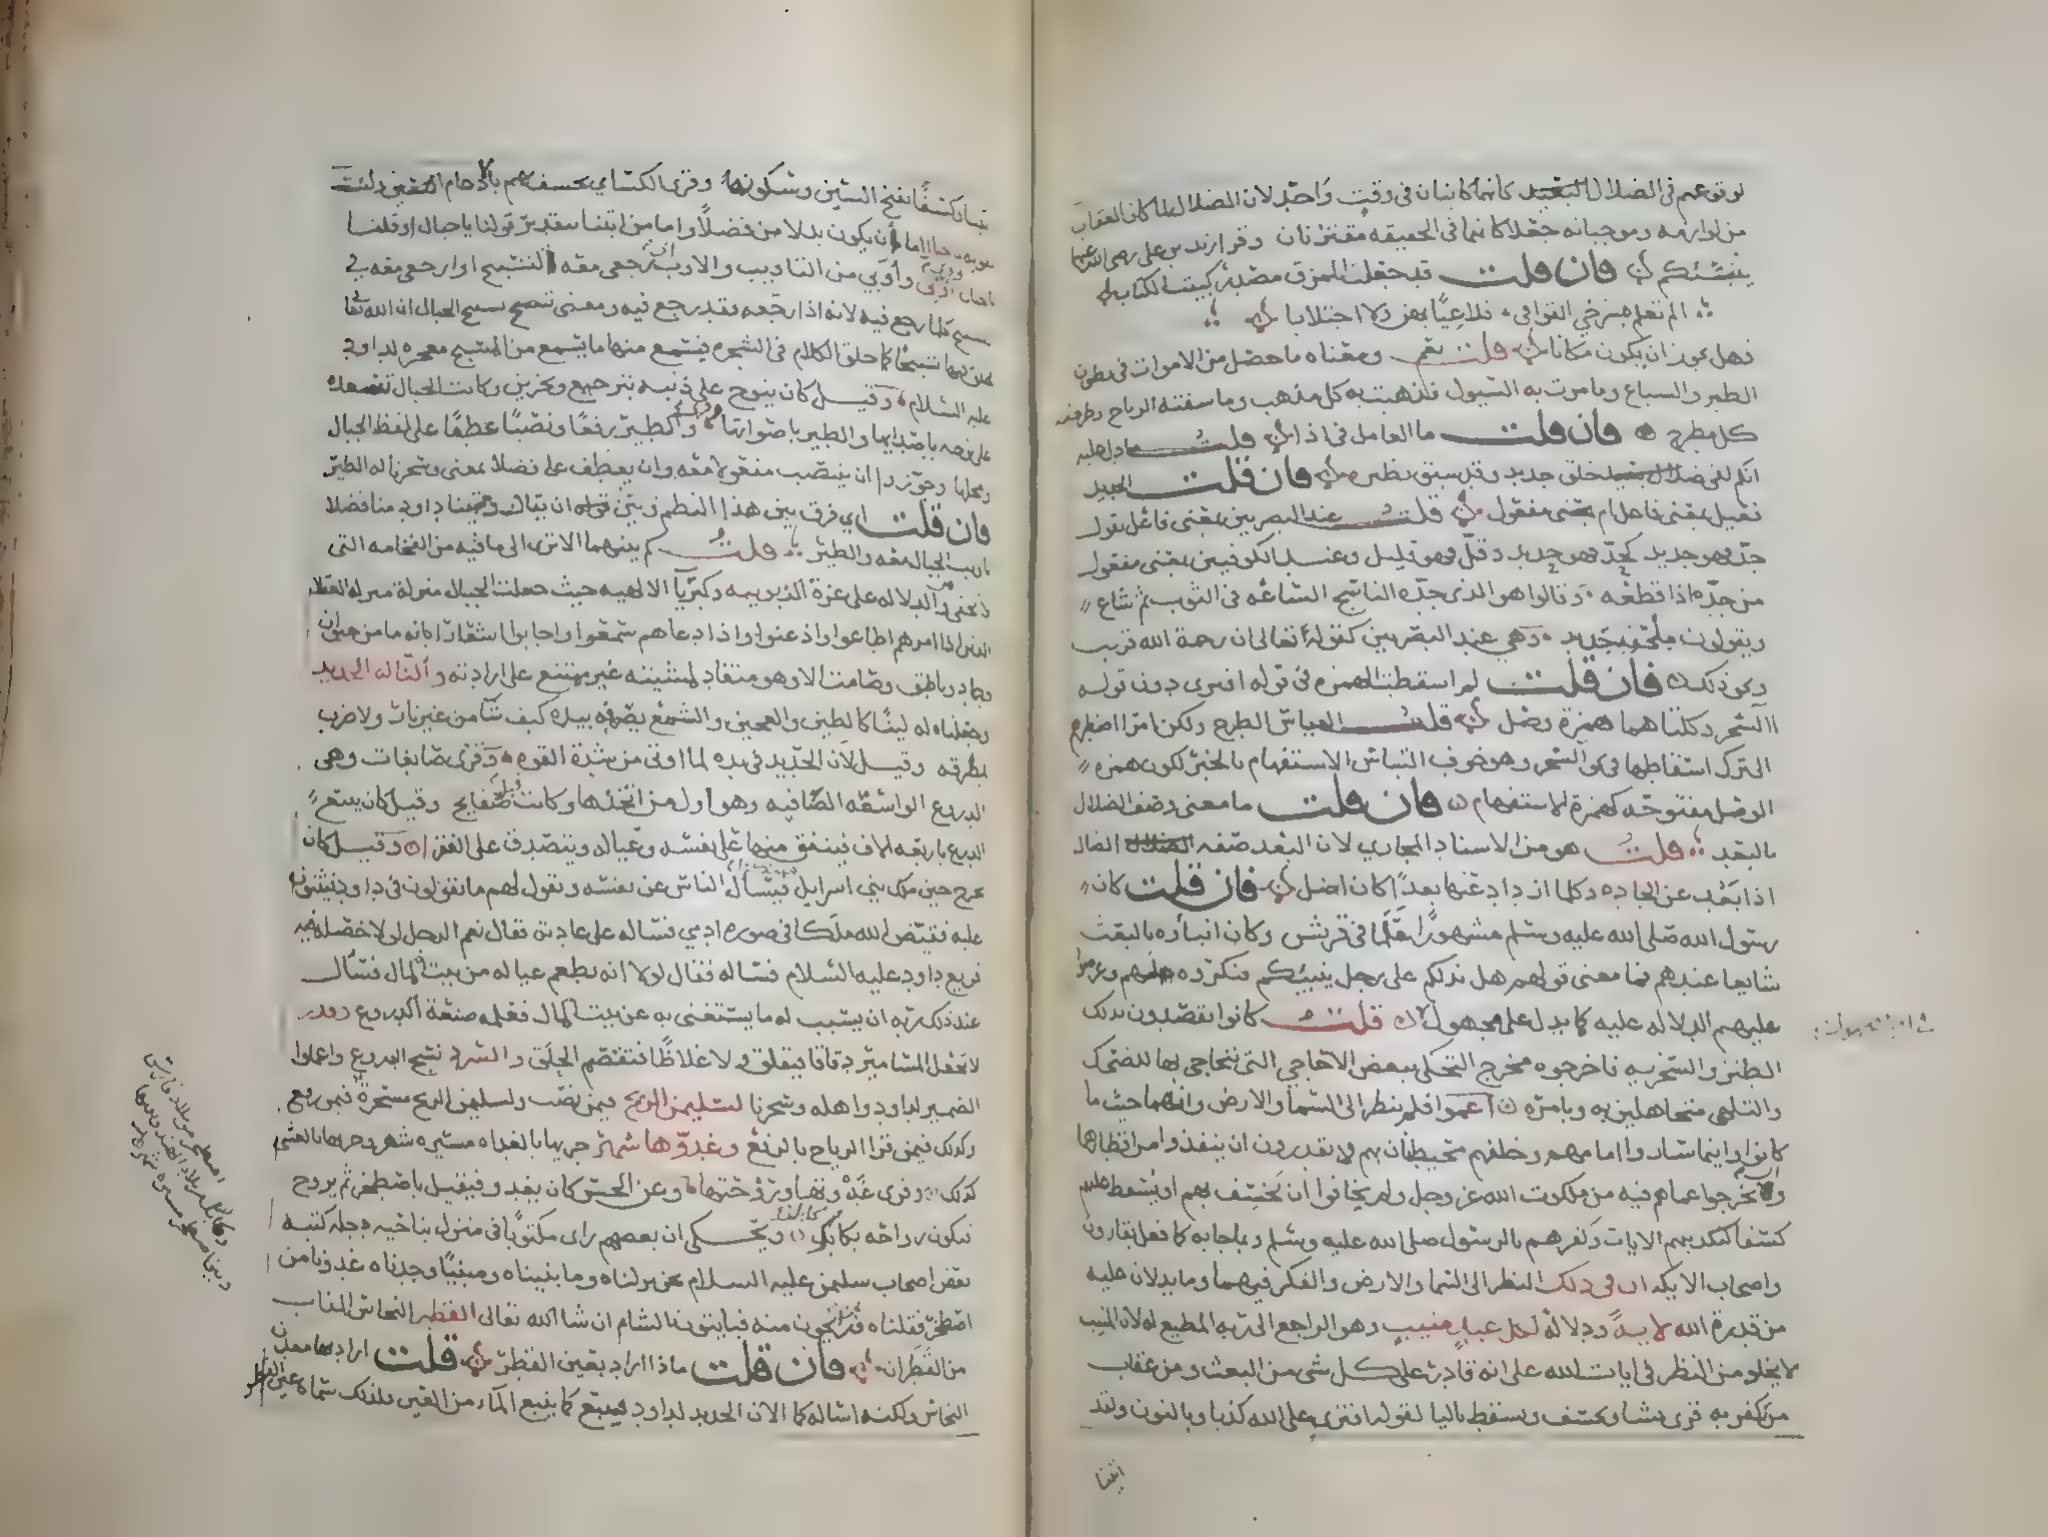 لوقوعهم في الضلال البعيد كانهما كاينان في وقت واحد لان الضلال لما كان العقاب
من لوازمه وموجباته جعلا كانهما في الحقيقه مقترنان وقرا زيد بن علي رضي الله عنهما
ينبئكم فان قلت قد جعلت الممزق مصدرا كبيت الكتاب
الم تعلم مسرحي القوافي فلا عيا بهن ولا اجتلابا
فهل يجوز ان يكون مكانا قلت نعم ومعناه ما حصل من الاموات في بطون
الطير والسباع وما مرت به السيول فذهبت به كل مذهب وما سفته الرياح وطرحته
كل مطرح فان قلت ما العامل في اذا قلت ما دل عليه
انكم لفي خلق جديد وقد سبق نظيره فان قلت الجديد
فعيل بمعنى فاعل ام بمعنى مفعول قلت عند البصريين بمعنى فاعل تقول
جد فهو جديد كحد فهو حديد وقل فهو قليل وعند الكوفيين بمعنى مفعول
من جده اذا قطعه وقالوا هو الذي جده الناسج الساعه في الثوب ثم شاع
ويقولون ملحفة جديد وهي عند البصريين كقوله تعالى ان رحمة الله قريب
ونحو ذلك فان قلت لم اسقطت الهمزه في قوله افترى دون قوله
االسحر وكلتاهما همزة وصل قلت القياس الطرح ولكن امرا اضطرهم
الى ترك اسقاطها في نحو السحر وهو خوف التباس الاستفهام بالخبر لكون همزه
الوصل مفتوحه كهمزة الاستفهام فان قلت ما معنى وصف الضلال
بالبعد قلت هو من الاسناد المجازي لان البعد صفه الضال
اذا بعد عن الجاده وكلما ازداد عنها بعدا كان اضل فان قلت كان
رسول الله صلى الله عليه وسلم مشهورا علما في قريش وكان انباؤه بالبعث
شايعا عندهم فما معنى قولهم هل ندلكم على رجل ينبيكم فنكروه لهم وعرضوا
عليهم الدلاله عليه كما يدل على مجهول قلت كانوا يقصدون بذلك
الطنز والسخريه فاخرجوه مخرج التحكي ببعض الاحاجي التي يتحاجى بها للضحك
والتلهي متجاهلين به وبامره اعموا فلم ينظروا الى السما والارض وانهما حيث ما
كانوا واينما ساروا امامهم وخلفهم محيطتان بهم لا يقدرون ان ينفذوا من اقطارها
وان يخرجوا عما هم فيه من ملكوت الله عز وجل ولم يخافوا ان يخسف بهم او يسقط عليهم
كسفا لتكذيبهم الايات وكفرهم بالرسول صلى الله عليه وسلم وبما جا به كما فعل بقارون
واصحاب الايكه ان في ذلك النظر الى السما والارض والفكر فيهما وما يدلان عليه
من قدرة الله لاية ودلاله لكل عبد منيب وهو الراجع الى ربه المطيع له لان المنيب
لا يخلو من النظر في ايات الله على انه قادر على كل شي من البعث ومن عقاب
من يكفر به قري يشا ويخسف ويسقط باليا لقوله افترى على الله كذبا وبالنون ولقد
اتينا
وكسفا بفتح السين وسكونها وقرى الكساي يخسف بهم بالادغام وليست
بقويه يا جبال اما ان يكون بدلا من فضلا واما من اتينا بتقدير قولنا يا جبال او قلنا
يا جبال اوبي واوبي من التاويب والاوب اي رجعي معه التسبيح او ارجعي معه في
التسبيح كلما رجع فيه لانه اذا رجعه فقد رجع فيه ومعنى تسبيح الجبال ان الله تعالى
يخلق فيها تسبيحا كما خلق الكلام في الشجره فيسمع منها ما يسمع من المسبح معجزه لداود
عليه السلام وقيل كان ينوح على ذنبه بترجيع وتحزين وكانت الجبال تسعده
على نوحه باصدايها والطير باصواتها وقري والطير رفعا ونصبا عطفا على لفظ الجبال
ومحلها وجوزوا ان ينتصب مفعولا معه وان يعطف على فضلا بمعنى وسخرنا له الطير
فان قلت اي فرق بين هذا النظم وبين ان يقال واتينا داود منا فضلا
تاويب الجبال معه والطير قلت كم بينهما الا ترى الى ما فيه من الفخامه التي
لا تخفى من الدلاله على عزة الربوبيه وكبريا الالهيه حيث جعلت الجبال منزلة منزلة العقلا
الذين اذا امرهم اطاعوا واذعنوا واذا دعاهم سمعوا واجابوا اشعارا بانه ما من حيوان
وجماد وناطق وصامت الا وهو منقاد لمشيئته غير ممتنع على ارادته والنا له الحديد
وجعلناه له لينا كالطين والعجين والشمع يصرفه بيده كيف شا من غير نار ولا ضرب
بمطرقه وقيل لان الحديد في يده لما اوتي من شدة القوه وقري صابغات وهي
الدروع الواسعه الضافيه وهو اول من اتخذها وكانت قبل صفايح وقيل كان يبيع
الدرع باربعه الاف فينفق منها على نفسه وعياله ويتصدق على الفقرا وقيل كان
يخرج حين ملك بني اسرايل فيسال الناس عن نفسه ويقول لهم ما تقولون في داود فيثنون
عليه فقيض الله ملكا في صوره ادمي فساله على عادته فقال نعم الرجل لولا خصلة فيه
فريع داود عليه السلام فساله فقال لولا انه يطعم عياله من بيت المال فسال
عند ذلك ربه ان يسبب له ما يستغني به عن بيت المال فعلمه صنعة الدروع وقدر
لا تجعل المسامير دقاقا فيقلق ولا غلاظا فتقصم الحلق والسرد نسج الدروع واعملوا
الضمير لداود واهله وسخرنا لسليمن الريح فيمن نصب ولسليمن الريح مسخرة فيمن رفع
وكذلك فيمن قرا الرياح بالرفع وغدوها شهر جريها بالغداه مسيره شهر وجريها بالعشي
كذلك وقري غدوتها وروحتها وعن الحسن كان يغدو فيقيل باصطخر ثم يروح
فيكون رواحه بكابل ويحكى ان بعضهم راى مكتوبا في منزل بناحيه دجله كتبه
بعض اصحاب سليمن عليه السلام نحن نزلناه وما بنيناه ومبنيا وجدناه غدونا من
اصطخر فقلناه ونحن رايحون منه فبايتون بالشام ان شا الله تعالى القطر النحاس المذاب
من القطران فان قلت ماذا اراد بعين القطر قلت اراد بها معدن
النحاس ولكنه اساله كما الان الحديد لداود فنبع كما ينبع الماء من العين فلذلك سماه عين القطر